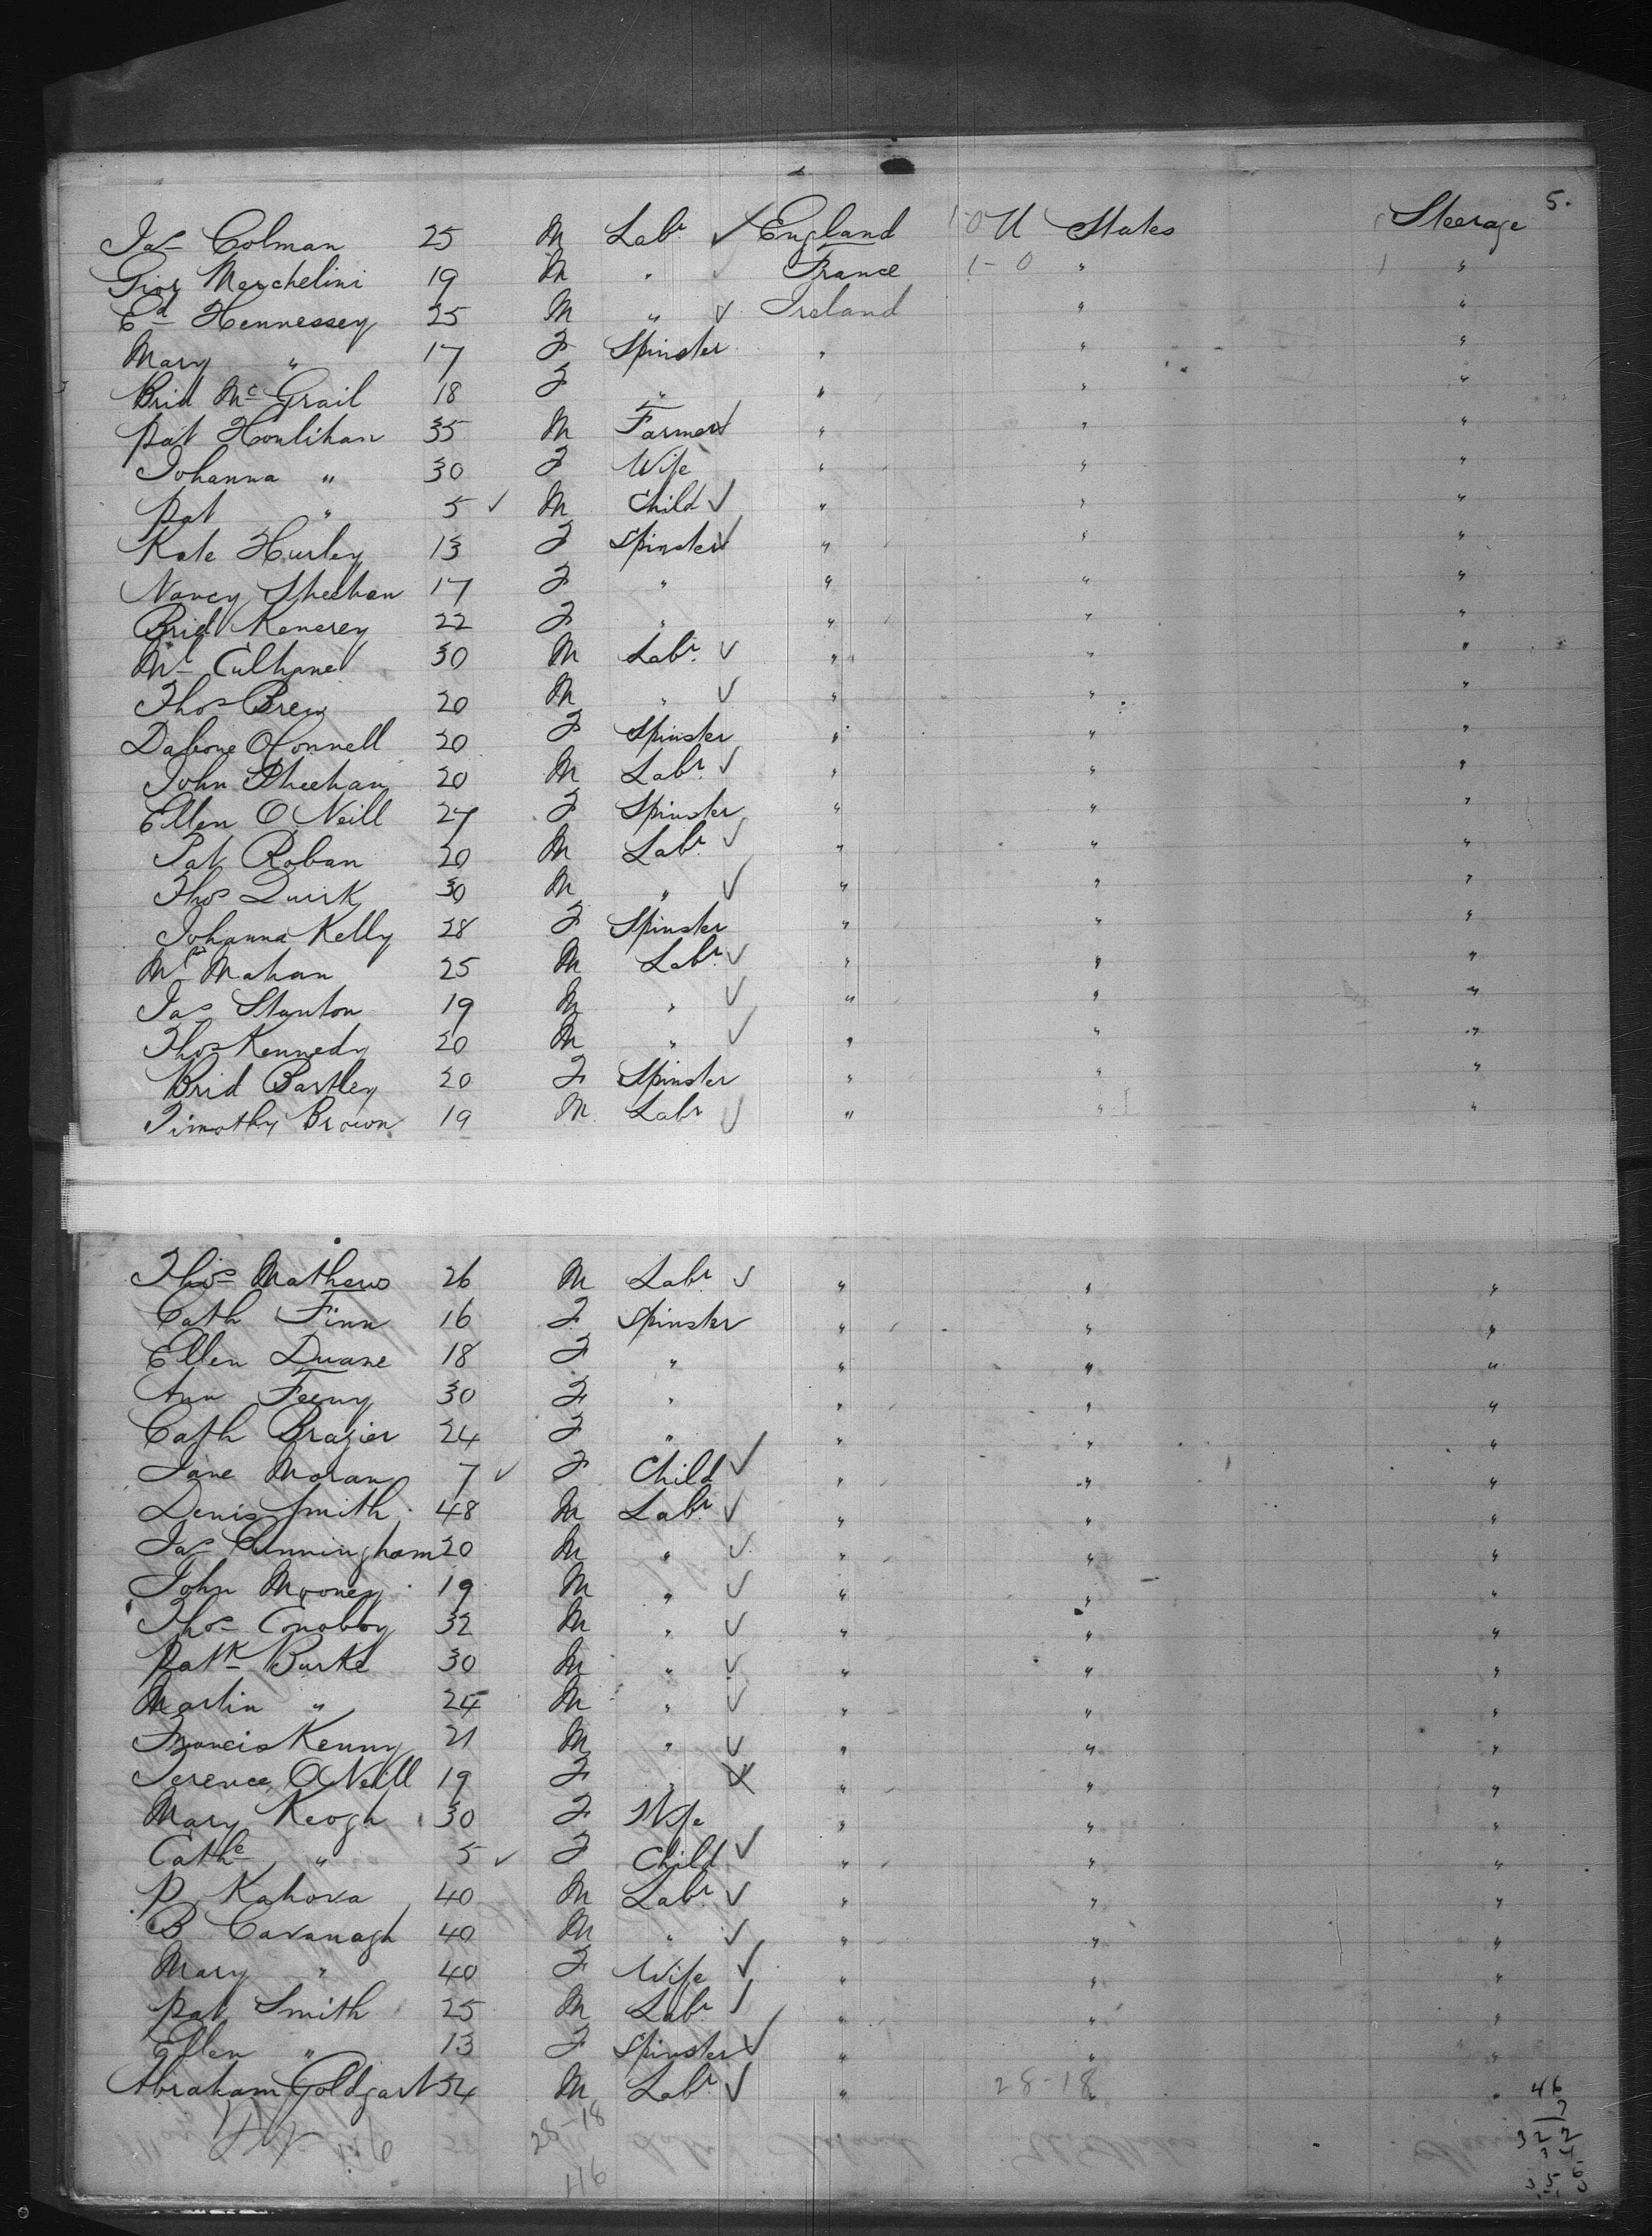 5.
Jas Colman 25 M Labr ✓ England 1-0 U States Steerage
Gior Merchelini 19 M " ✓ France 1-0 " 1 "
Ed Hennessey 25 M " ✓ Ireland " "
Mary " 17 F Spinster " " "
Brid McGrail 18 F " " " "
Pat Honlihan 35 M Farmer ✓ " " "
Johanna " 30 F Wife " " "
Pat " 5 ✓ M Child ✓ " " "
Kate Hurley 13 F Spinster ✓ " " "
Nancy Sheehan 17 F " " " "
Brid Kenerey 22 F " " " "
Ml Culhane 30 M Labr ✓ " " "
Thos Brew 20 M " ✓ " " "
Dabone OConnell 20 F Spinster " " "
John Sheehan 20 M Labr ✓ " " "
Ellen O Neill 27 F Spinster " " "
Pat Roban 20 M Labr ✓ " " "
Thos Quirk 30 M " ✓ " " "
Johanna Kelly 28 F Spinster " " "
Mahan 25 M Labr ✓ " " "
Jas Stanton 19 M " ✓ " " "
Thos Kennedy 20 M " ✓ " " "
Brid Bartley 20 F Spinster " " "
Timothy Brown 19 M Labr ✓ " " "
Thos Mathews 26 M Labr ✓ " " "
Cath Finn 16 F Spinster " " "
Ellen Duane 18 F " " " "
Ann Feeny 30 F " " " "
Cath Brazier 24 F " " " "
Jane Moran 7 ✓ F Child ✓ " " "
Denis Smith 48 M Labr ✓ " " "
Jas Cunningham 20 M " ✓ " " "
John Mooney 19 M " ✓ " " "
Thos Conobby 32 M " ✓ " " "
Patk Burke 30 M " ✓ " " "
Martin " 24 M " ✓ " " "
Francis Kenny 21 M " ✓ " " "
Terence ONeill 19 F " ✓ " " "
Mary Keogh 30 F Wife " " "
Cathe " 5 ✓ F Child ✓ " " "
P Kahova 40 M Labr ✓ " " "
B Cavanagh 40 M " ✓ " " "
Mary " 40 F Wife ✓ " " "
Pat Smith 25 M Labr ✓ " " "
Ellen " 13 F Spinster ✓ " " "
Abraham Goldgart 34 M Labr ✓ " 28-18 " "
46
7
28-18 322
34
116 356